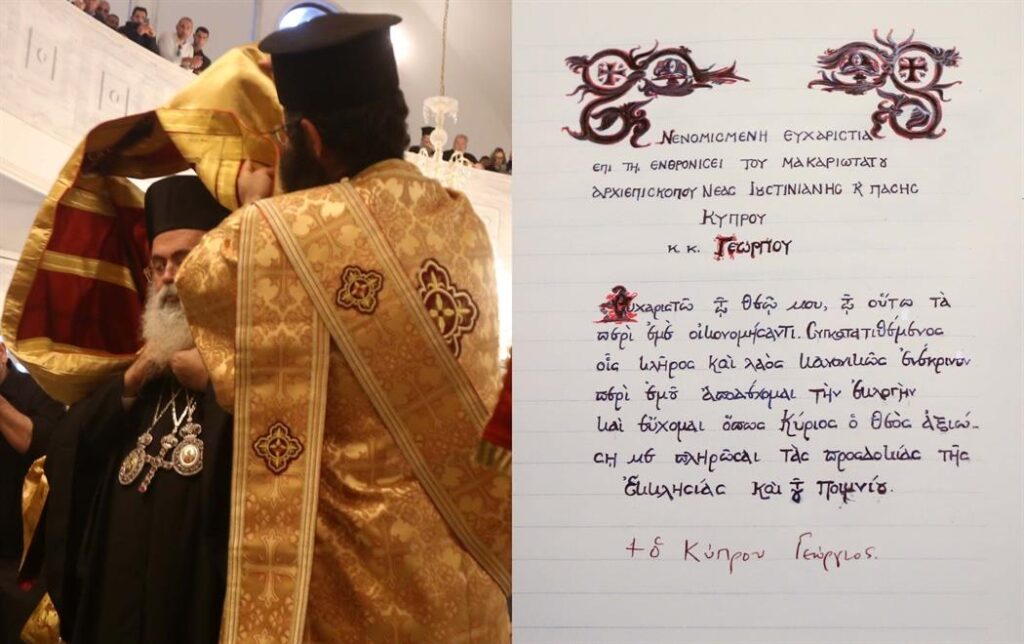 ΝΕΝΟΜΙΣΜΕΝΗ ΕΥΧΑΡΙΣΤΙΑ
ΕΠΙ ΤΗ ΕΝΘΡΟΝΙΣΕΙ ΤΟΥ ΜΑΚΑΡΙΩΤΑΤȢ
ΑΡΧΙΕΠΙΣΚΟΠΟΥ ΝΕΑΣ ΙȢΣΤΙΝΙΑΝΗΣ Ϗ ΠΑΣΗΣ
ΚΥΠΡΟΥ
κ. κ. ΓΕΩΡΓΙΟΥ
Εὐχαριστῶ τῷ Θεῷ μου, τῷ οὕτω τὰ
περὶ ἐμὲ οἰκονομήσαντι. Συγκατατιθέμενος
οἷς κλῆρος καὶ λαὸς κανονικῶς ἐνέκρινον
περὶ ἐμοῦ ἀποδέχομαι τὴν ἐκλογὴν
καὶ εὔχομαι ὅπως Κύριος ὁ Θεὸς ἀξιώ-
σῃ με πληρῶσαι τὰς προσδοκίας τῆς
Ἐκκλησίας καὶ τοῦ Ποιμνίȣ.
+ ὁ Κύπρου Γεώργιος.